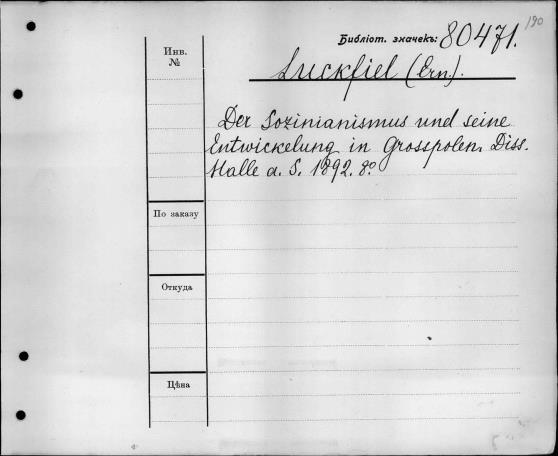 190
Библіот. значекъ: 80471.
Инв.
№
Luckfiel (Ern.).
Der Sozinianismus und seine
Entwickelung in Grosspolen. Diss.
Halle a. S. 1892. 8º
По заказу
Откуда
Цѣна